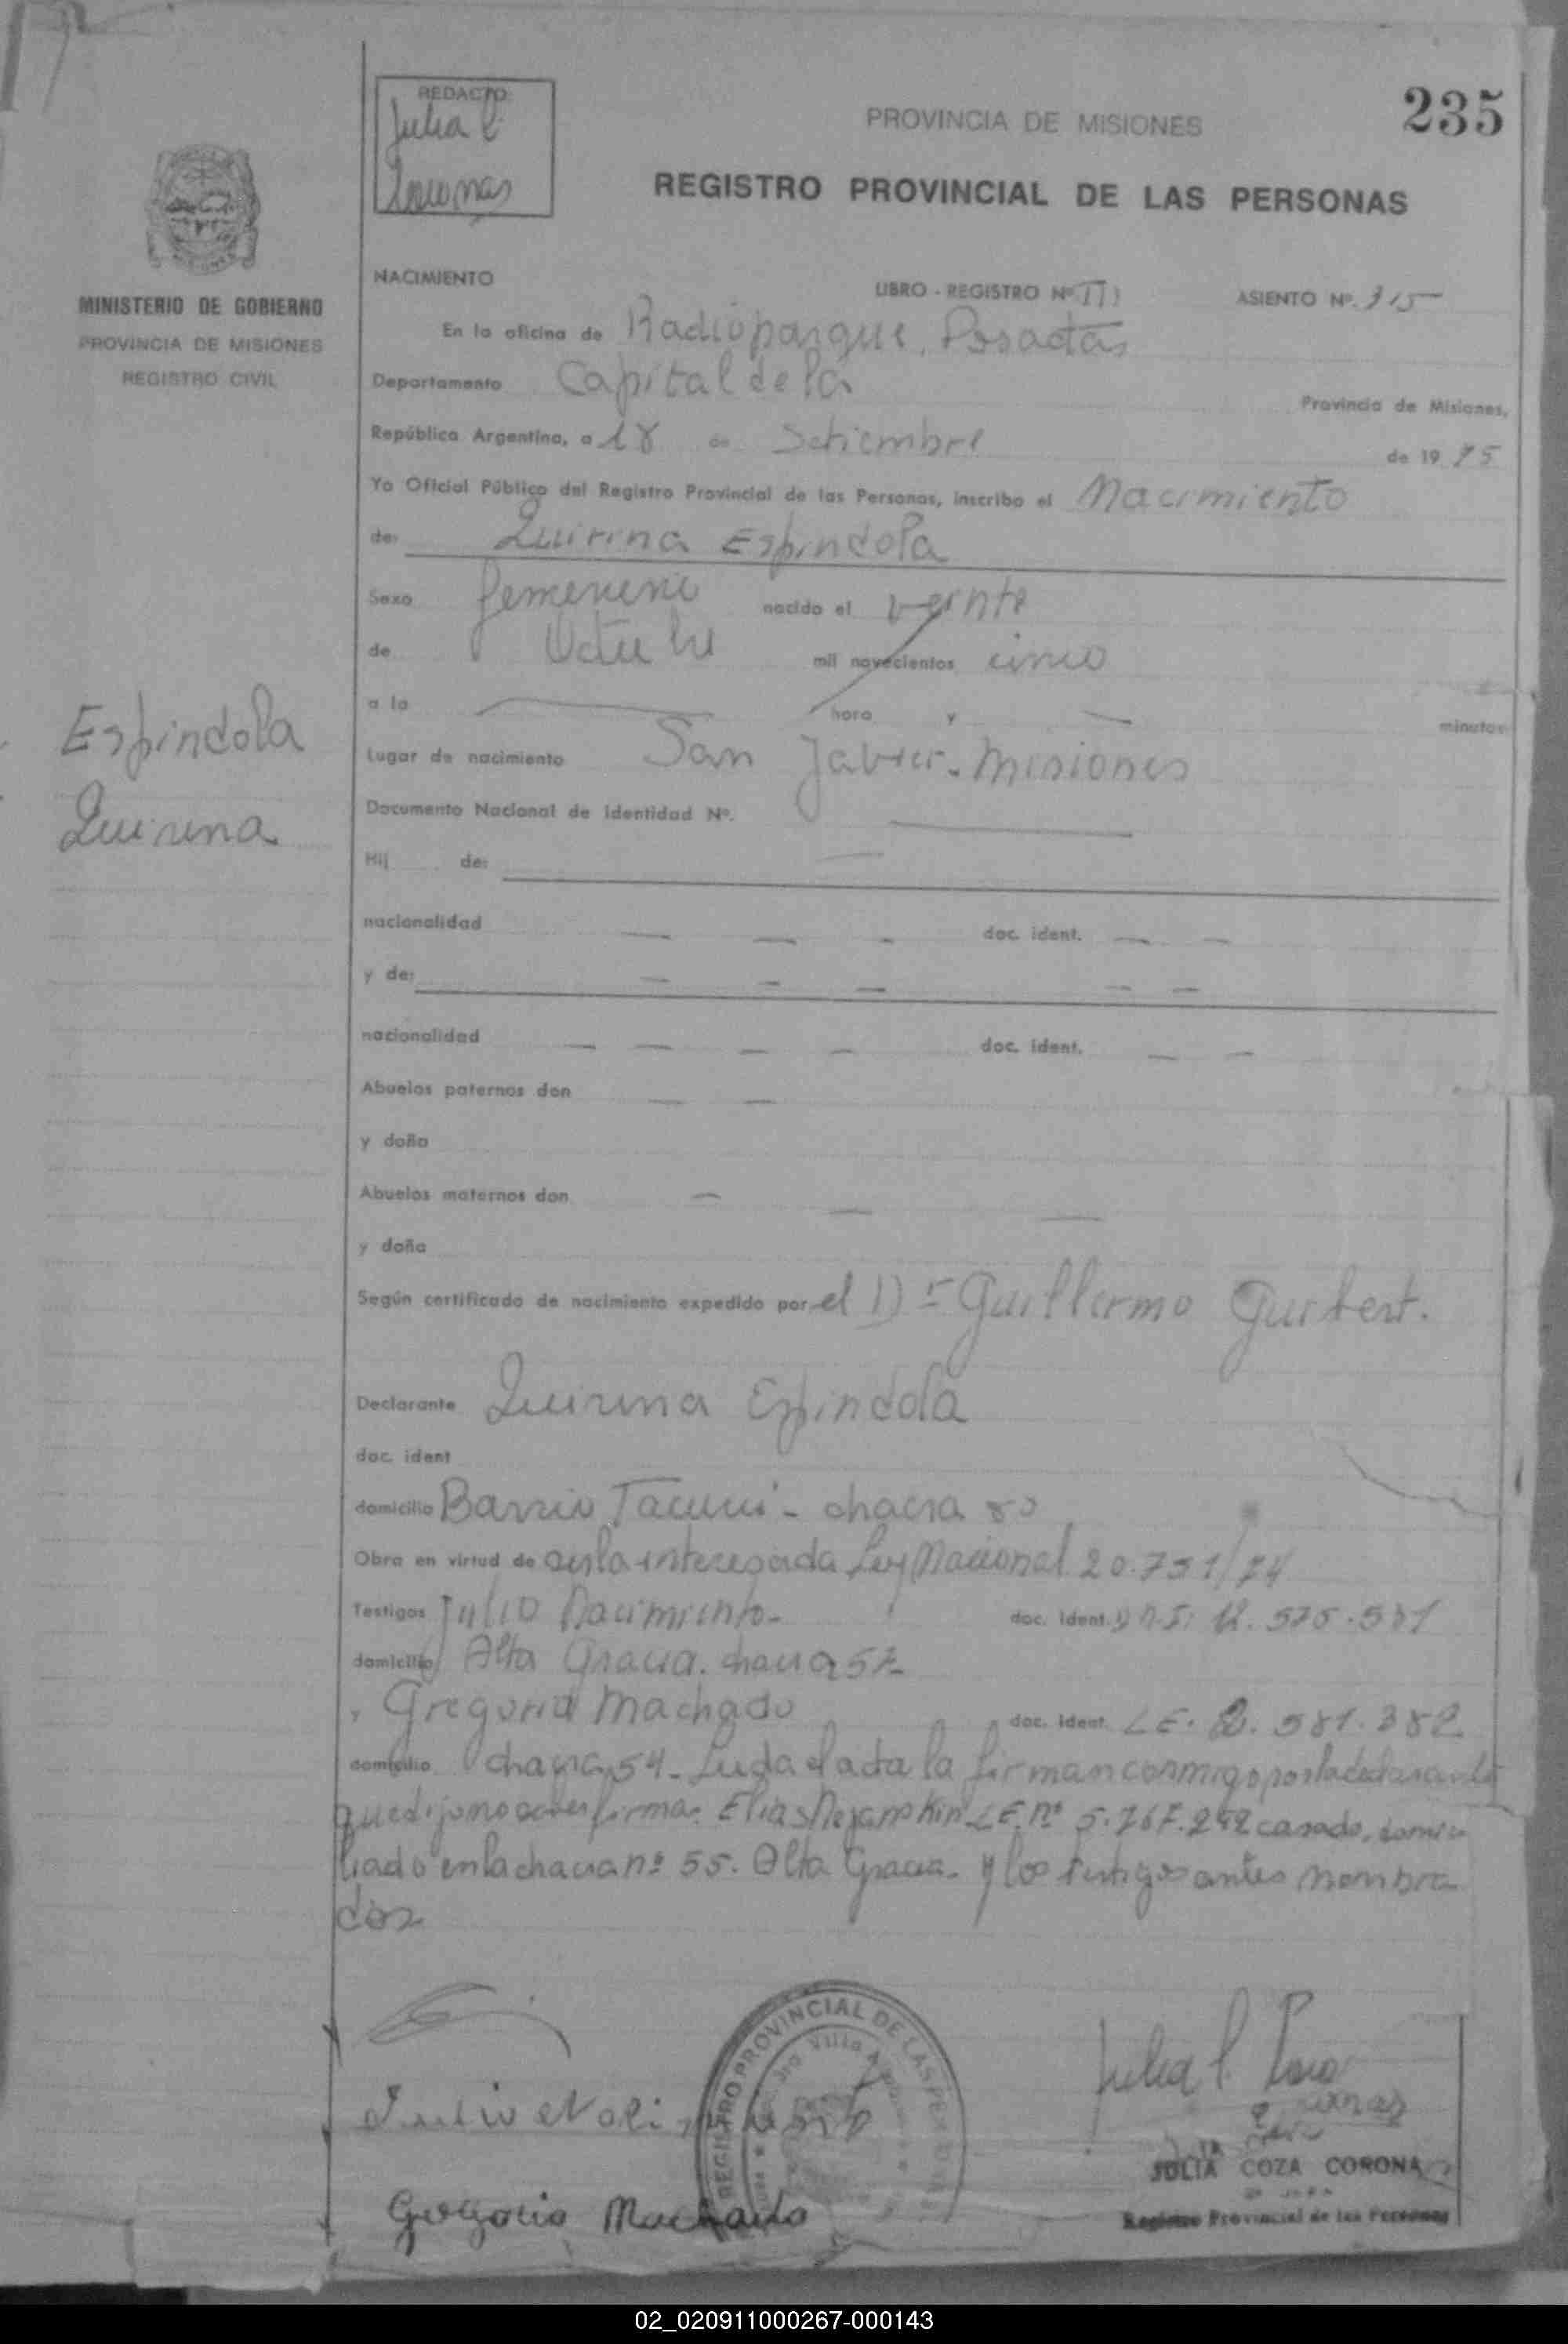 235
REDACTO:
Julia C.
PROVINCIA DE MISIONES
REGISTRO PROVINCIAL DE LAS PERSONAS
MINISTERIO DE GOBIERNO
PROVINCIA DE MISIONES
REGISTRO CIVIL
NACIMIENTO
LIBRO - REGISTRO Nº III ASIENTO Nº. 315
En la oficina de Radioparque, Posadas
Departamento Capital de la Provincia de Misiones,
República Argentina, a 18 de Setiembre de 19 75
Yo Oficial Público del Registro Provincial de las Personas, inscribo el Nacimiento
de: Quirina Espindola
Sexo femenino nacido el veinte
de Octubre mil novecientos cinco
a la hora y minutos
Espindola
Quirina
Lugar de nacimiento San Javier - Misiones
Documento Nacional de Identidad Nº.
Hij de:
nacionalidad doc. ident.
y de:
nacionalidad doc. ident.
Abuelos paternos don
y doña
Abuelos maternos don
y doña
Según certificado de nacimiento expedido por el Dr Guillermo
Declarante Quirina Espindola
doc. ident
domicilio Barrio Tacurú - chacra 80
Obra en virtud de ser la interesada Ley Nacional 20.751/74
Testigos Julio Nacimiento - doc. ident. D.N.I. 12.575.581
domicilio Alta Gracia. chacra 57
y Gregorio Machado doc. ident. LE. 2.581.382
domicilio chacra 54 - Leida el acta la firman conmigo por la declarante
que dijo no saber firmar Elias LE. nº 5.767.242 casado, domici
liado en la chacra nº 55. Alta Gracia - y los testigos antes nombra
dos
REGISTRO PROVINCIAL DE LAS PERSONAS
Villa
Gregorio Machado
JULIA COZA CORONA
Registro Provincial de las Personas
02_020911000267-000143